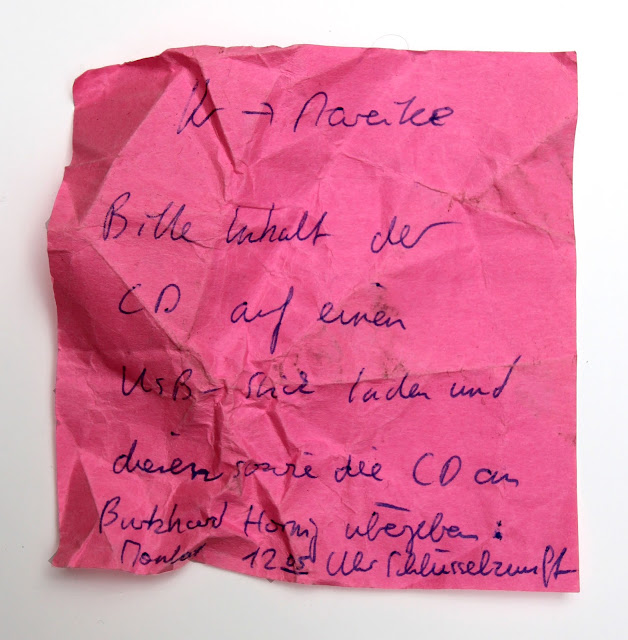 → Mareike
Bitte Inhalt der
CD auf einen
USB-Stick laden und
diesen sowie die CD an
Burkhard Hornig übergeben:
Montag 12 05 Uhr Schlüsselzunft